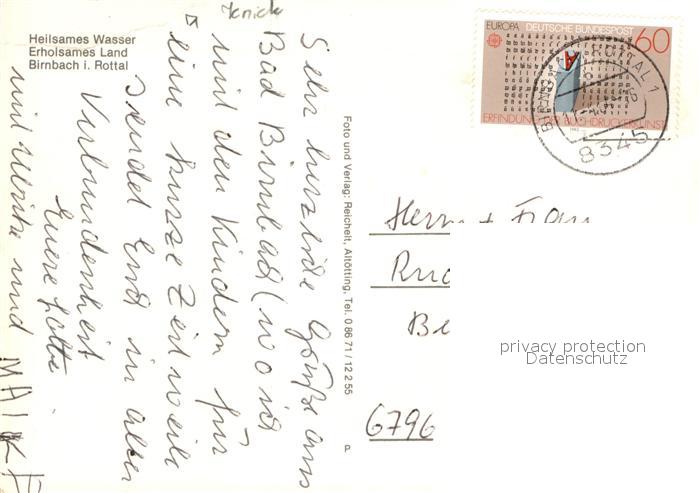 Heilsames Wasser
Erholsames Land
Birnbach i. Rottal
Sehr herzliche Grüße aus
Bad Birnbach (wo ich
mit den Kindern für
eine kurze Zeit weile
sendet Euch in alter
Verbundenheit
Euere Lotte
mit Ulrike und MAIKE
Foto und Verlag: Reichelt, Altötting, Tel. 0 86 71 / 12 2 55
P
EUROPA DEUTSCHE BUNDESPOST 60
ERFINDUNG DER BUCHDRUCKERKUNST
8345
Herrn + Frau
6796
privacy protection
Datenschutz